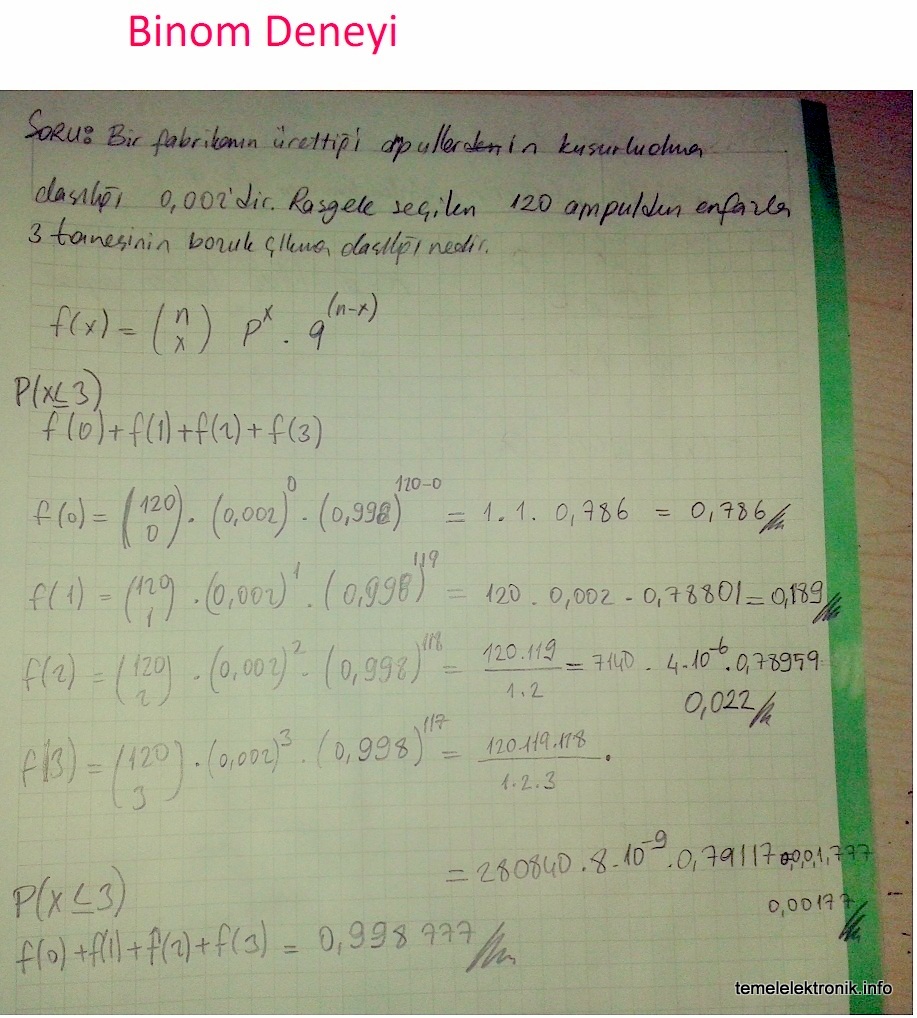 Binom Deneyi
SORU: Bir fabrikanın ürettiği ampullerin kusurlu olma
olasılığı 0,002'dir. Rasgele seçilen 120 ampulden en fazla
3 tanesinin bozuk çıkma olasılığı nedir.
f(x) = (n x) p^x . q^(n-x)
P(x≤3)
f(0)+f(1)+f(2)+f(3)
f(0) = (120 0) . (0,002)^0 . (0,998)^120-0 = 1.1. 0,786 = 0,786
f(1) = (120 1) . (0,002)^1 . (0,998)^119 = 120 . 0,002 . 0,78801 = 0,189
f(2) = (120 2) . (0,002)^2 . (0,998)^118 = 120.119 / 1.2 = 7140 . 4.10^-6 . 0,78959
0,022
f(3) = (120 3) . (0,002)^3 . (0,998)^117 = 120.119.118 / 1.2.3 .
= 280840 . 8.10^-9 . 0,79117
0,00177
P(x≤3)
f(0)+f(1)+f(2)+f(3) = 0,998777
temelelektronik.info